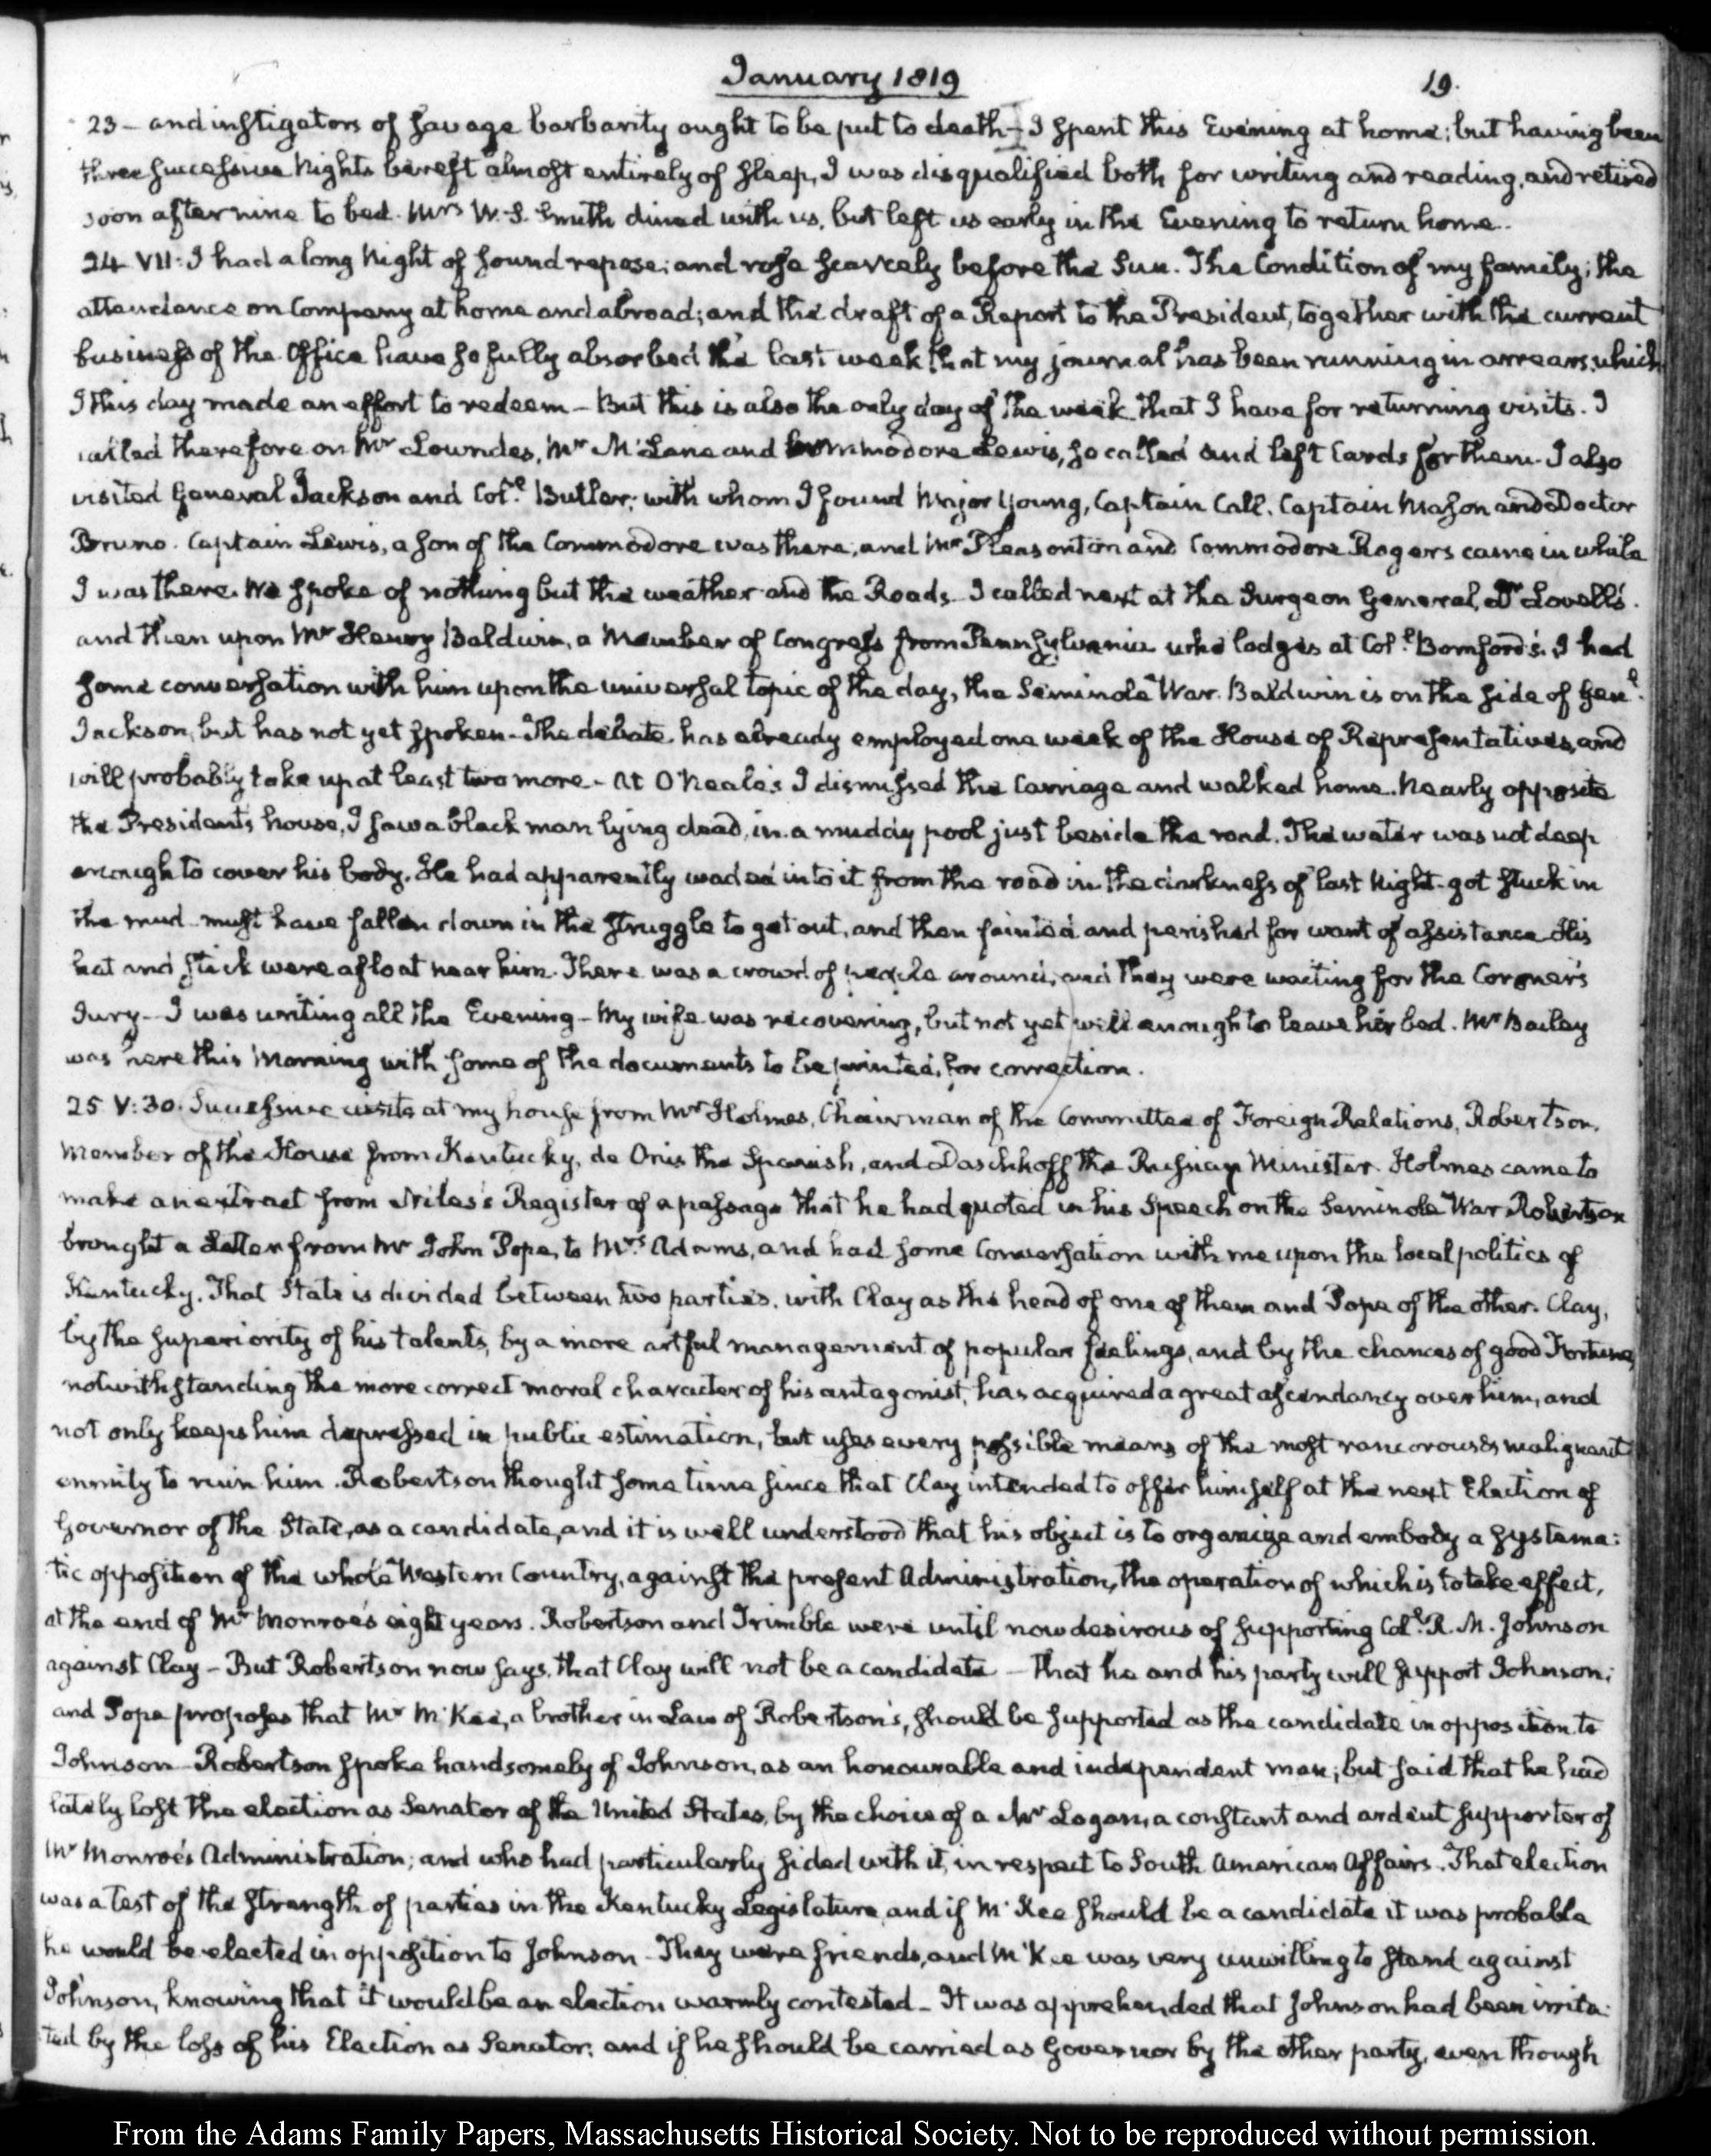 January 1819
19.
23 – and instigators of savage barbarity ought to be put to death – I spent this Evening at home; but having been
three successive Nights bereft almost entirely of sleep, I was disqualified both for writing and reading, and retired
soon after nine to bed. Mrs W. S. Smith dined with us, but left us early in the Evening to return home.
24 VII. I had a long Night of sound repose; and rose scarcely before the Sun. The Condition of my family; the
attendance on Company at home and abroad; and the draft of a Report to the President, together with the current
business of the Office have so fully absorbed the last week that my journal has been running in arrears, which
I this day made an effort to redeem – But this is also the only day of the week that I have for returning visits. I
called therefore on Mr Lowndes, Mr McLane and Commodore Lewis, so called and left Cards for them. I also
visited General Jackson and Coll. Butler; with whom I found Major Young, Captain Call, Captain Mason and Doctor
Bruno. Captain Lewis, a son of the Commodore was there, and Mr Pleasonton and Commodore Rogers came in while
I was there. We spoke of nothing but the weather and the Roads. I called next at the Surgeon General, Dr Lovell's.
and then upon Mr Henry Baldwin, a Member of Congress from Pennsylvania who lodges at Coll. Bomford's. I had
some conversation with him upon the universal topic of the day, the Seminole War. Baldwin is on the side of Genl.
Jackson, but has not yet spoken – The debate has already employed one week of the House of Representatives, and
will probably take up at least two more – At O'Neale's I dismissed the Carriage and walked home. Nearly opposite
the President's house, I saw a black man lying dead, in a muddy pool just beside the road. The water was not deep
enough to cover his body. He had apparently waded into it from the road in the darkness of last Night – got stuck in
the mud – must have fallen down in the struggle to get out, and then fainted and perished for want of assistance – His
hat and stick were afloat near him. There was a crowd of people around, and they were waiting for the Coroner's
Jury – I was writing all the Evening – My wife was recovering, but not yet well enough to leave her bed. Mr Bailey
was here this Morning with some of the documents to be printed, for correction.
25 V:30. Successive visits at my house from Mr Holmes, Chairman of the Committee of Foreign Relations, Robertson,
Member of the House from Kentucky, de Onis the Spanish, and Daschkoff the Russian Minister. Holmes came to
make an extract from Niles's Register of a passage that he had quoted in his Speech on the Seminole War Robertson
brought a Letter from Mr John Pope, to Mrs Adams, and had some Conversation with me upon the local politics of
Kentucky. That State is divided between two parties, with Clay as the head of one of them and Pope of the other. Clay,
by the superiority of his talents, by a more artful management of popular feelings, and by the chances of good Fortune,
notwithstanding the more correct moral character of his antagonist, has acquired a great ascendancy over him, and
not only keeps him depressed in public estimation, but uses every possible means of the most rancorous & malignant
enmity to ruin him. Robertson thought some time since that Clay intended to offer himself at the next Election of
Governor of the State, as a candidate, and it is well understood that his object is to organize and embody a systema:
tic opposition of the whole Western Country, against the present Administration, the operation of which is to take effect,
at the end of Mr Monroe's eight years. Robertson and Trimble were until now desirous of supporting Coll. R. M. Johnson
against Clay – But Robertson now says, that Clay will not be a candidate – That he and his party will support Johnson;
and Pope proposes that Mr McKee, a brother in Law of Robertson's, should be supported as the candidate in opposition to
Johnson – Robertson spoke handsomely of Johnson, as an honourable and independent man; but said that he had
lately lost the election as Senator of the United States, by the choice of a Mr Logan, a constant and ardent supporter of
Mr Monroe's Administration; and who had particularly sided with it, in respect to South American Affairs. That election
was a test of the strength of parties in the Kentucky Legislature, and if McKee should be a candidate it was probable
he would be elected in opposition to Johnson – They were friends, and McKee was very unwilling to stand against
Johnson, knowing that it would be an election warmly contested – It was apprehended that Johnson had been irrita:
ted by the loss of his Election as Senator; and if he should be carried as Governor by the other party, even though
From the Adams Family Papers, Massachusetts Historical Society. Not to be reproduced without permission.